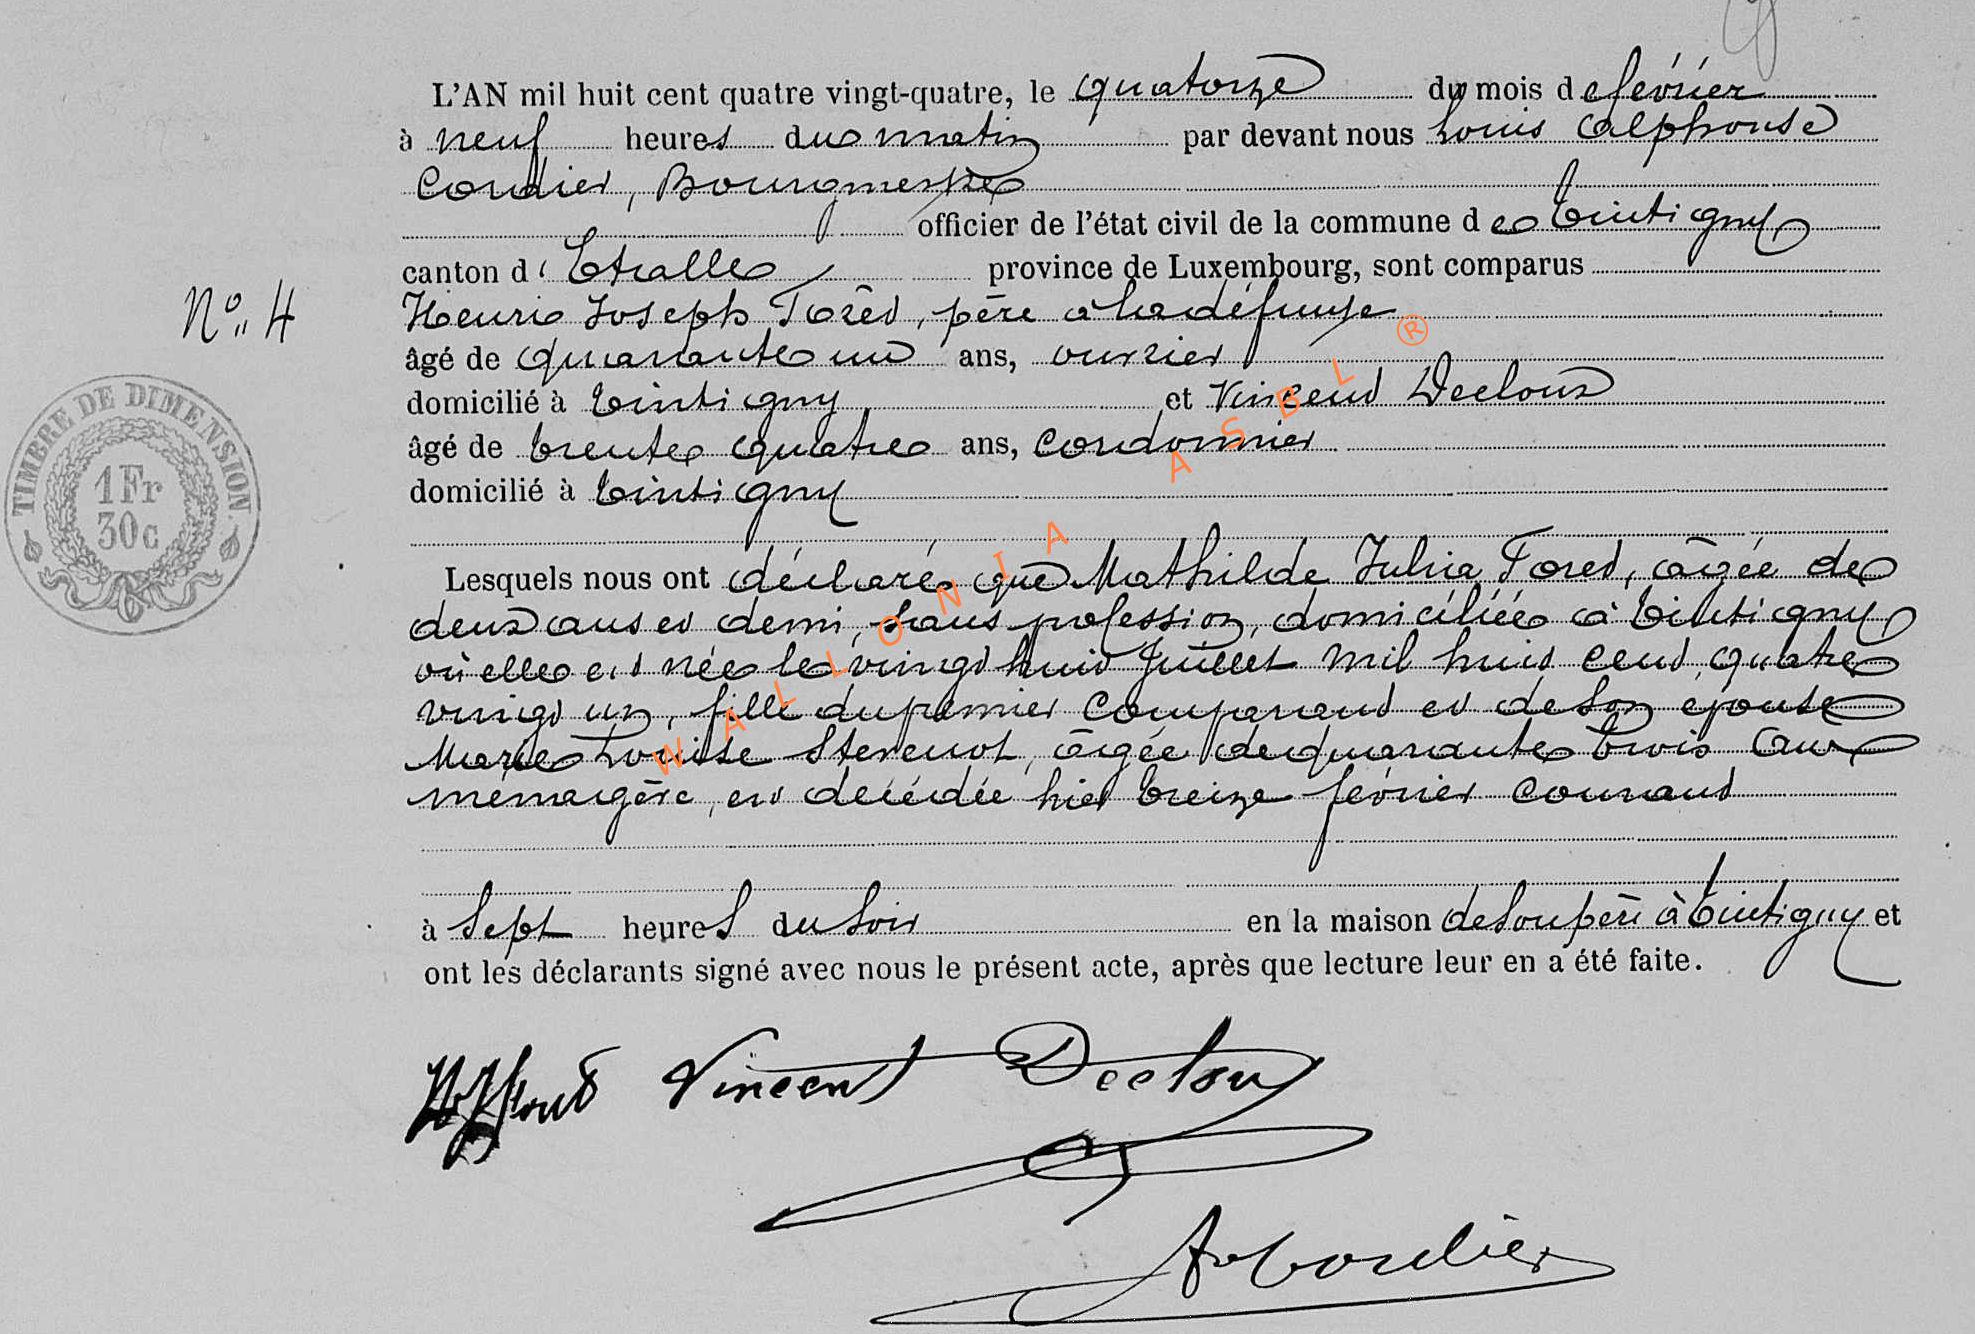 L'AN mil huit cent quatre vingt-quatre, le quatorze du mois de février
à neuf heures du matin par devant nous Louis Alphonse
Cordier, Bourgmestre
officier de l'état civil de la commune de Tintigny
canton d'Etalle province de Luxembourg, sont comparus
Henri Joseph Foret, père à la défunte
N° 4
âgé de quarante un ans, ouvrier
domicilié à Tintigny et Vincent Decloux
âgé de trente quatre ans, cordonnier
domicilié à Tintigny
TIMBRE DE DIMENSION.
1 Fr
30c
Lesquels nous ont déclaré que Mathilde Julia Foret, âgée de
deux ans et demi, sans profession, domiciliée à Tintigny
où elle est née le vingt huit Juillet mil huit cent quatre
vingt un, fille du premier comparant et de son épouse
Marie Louise Stevenot, âgée de quarante trois ans
ménagère, est décédée hier treize février courant
à Sept heures du soir en la maison de son père à Tintigny et
ont les déclarants signé avec nous le présent acte, après que lecture leur en a été faite.
Vincent Decloux
Cordier
WALLONIA ASBL ®